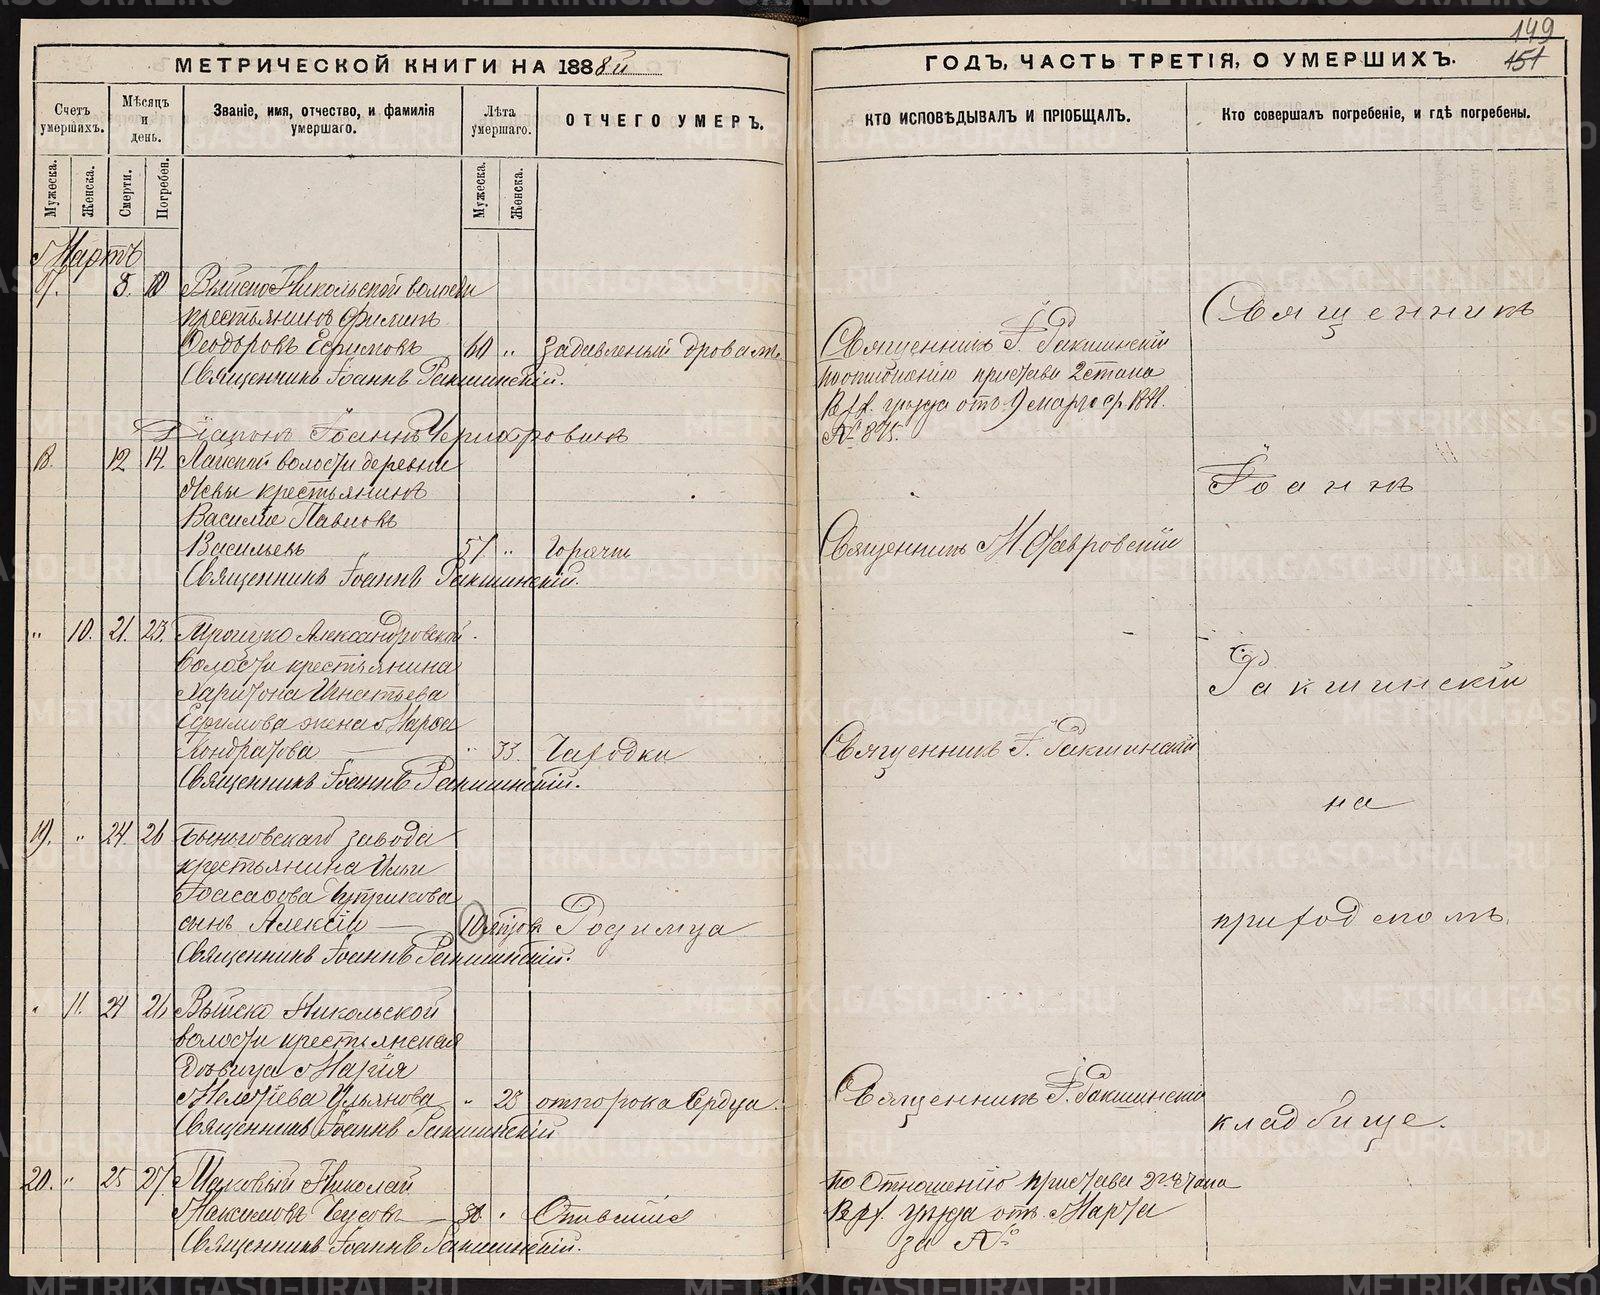 149
151
МЕТРИЧЕСКОЙ КНИГИ НА 1888й
ГОДЪ, ЧАСТЬ ТРЕТІЯ, О УМЕРШИХЪ.
Счетъ умершихъ.
Мѣсяцъ и день.
Званіе, имя, отчество, и фамилія умершаго.
Лѣта умершаго.
ОТЧЕГО УМЕРЪ.
КТО ИСПОВѢДЫВАЛЪ И ПРІОБЩАЛЪ.
Кто совершалъ погребеніе, и гдѣ погребены.
Мужеска.
Женска.
Смерти.
Погребен.
Мужеска.
Женска.
Мартъ
17. 8. 10 Выйско Никольской волости
крестьянинъ Филипъ
Феодоровъ Ефимовъ 60 „ задавленый дровами
Священникъ Іоаннъ Ракшинскій.
Діаконъ Іоаннъ
18. 12 14. Лайской волости деревни
крестьянинъ
Василіе Павловъ
Васильевъ 57 „ Горячт
Священникъ Іоаннъ Ракшинскій.
„ 10. 21. 23. Троицко Александровской
волости крестьянина
Харитона Игнатьева
Ефимова жена Марфа
Кондратова „ 33. Чахотки
Священникъ Іоаннъ Ракшинскій.
19. „ 24. 26 Быньговскаго завода
крестьянина Ильи
Іоасафова
сынъ Алексій 10 Родимца
Священникъ Іоаннъ Ракшинскій.
„ 11. 24 26 Выйско Никольской
волости крестьянская
дѣвица Марія
Мелетіева Ульянова „ 23 отпорока Сердца.
Священникъ Іоаннъ Ракшинскій
20. „ 25 27. Николай
Максимовъ „ Опившійся
Священникъ Іоаннъ Ракшинскій.
Священникъ І. Ракшинскій
поотношенію пристава 2 стана
Верх. уѣзда отъ 9 марта
№ 875.
Священникъ
Священникъ І. Ракшинскій
Священникъ І. Ракшинскій
по Отношенію пристава 2го стана
Верх. уѣзда отъ Марта
за №
Священникъ
Іоаннъ
Ракшинскій
на
приходскомъ
кладбище.
METRIKI.GASO-URAL.RU